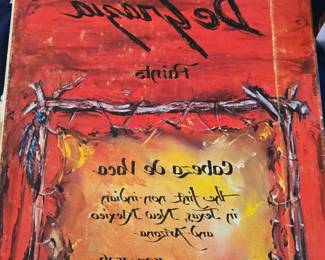 De Grazia
Paints
Cabeza de Vaca
the first non-indian
in Texas, New Mexico
and Arizona